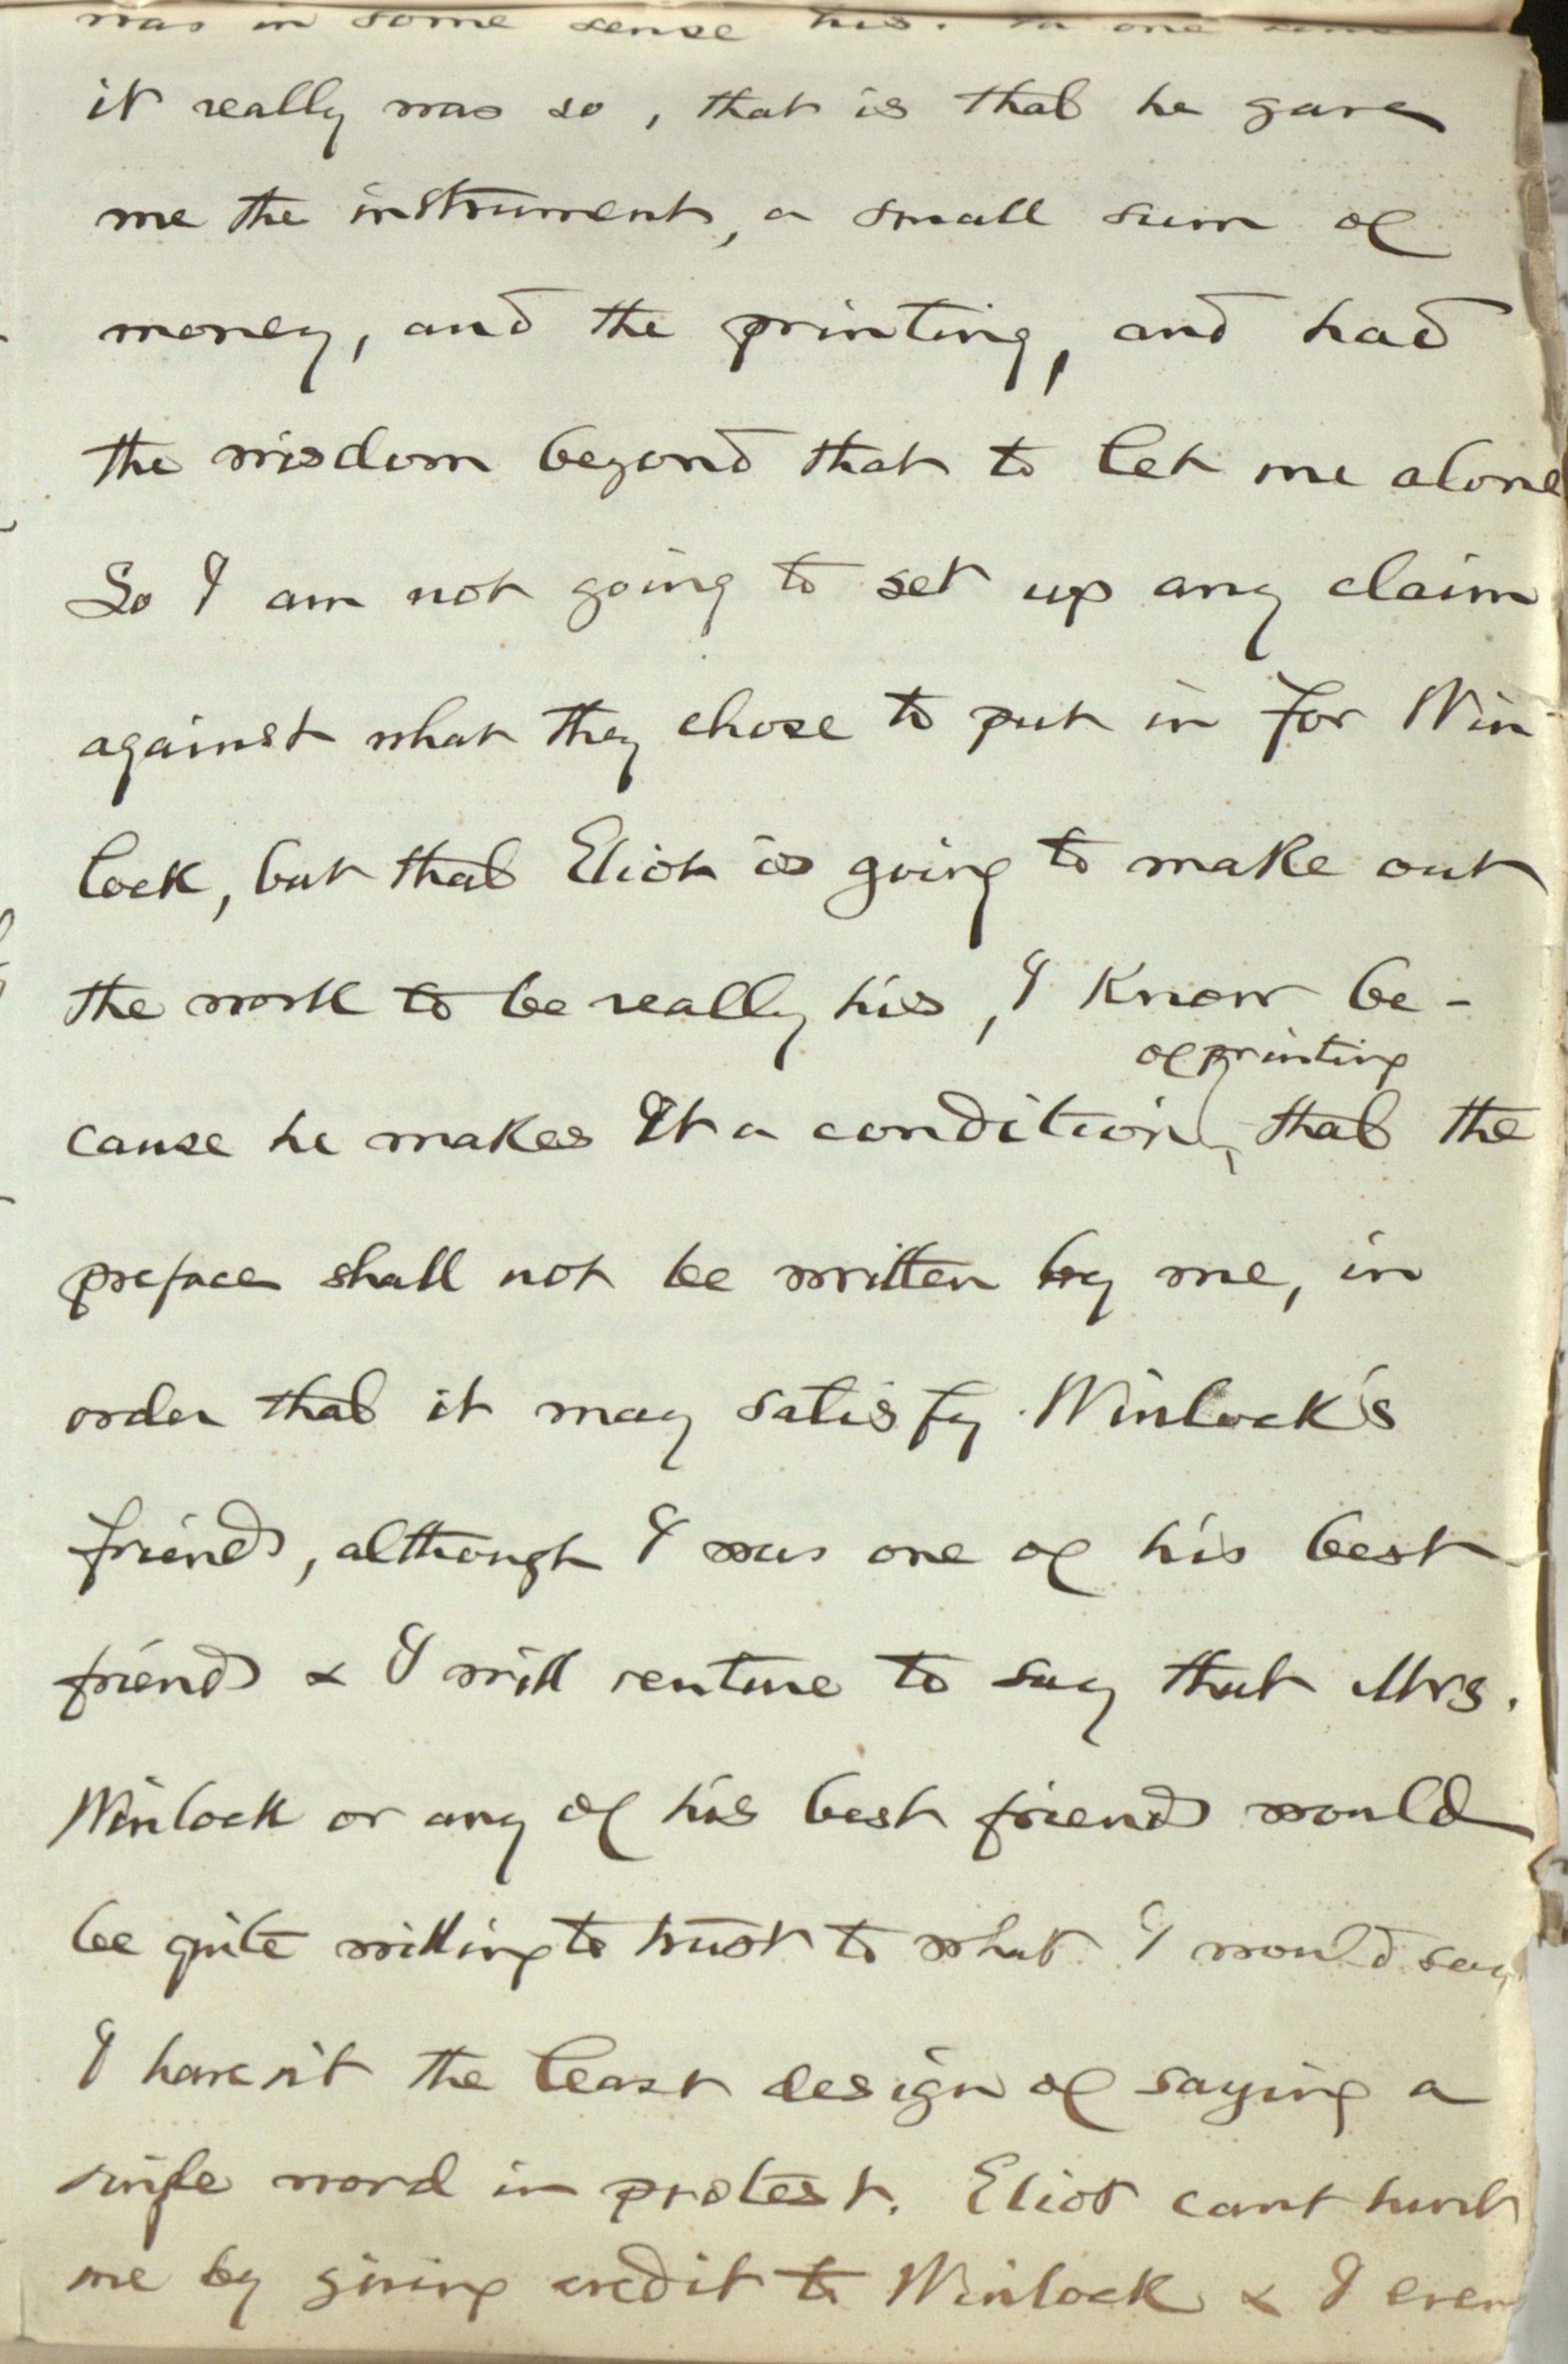 was in some sense his. In one sense
it really was so, that is that he gave
me the instrument, a small sum of
money, and the printing, and had
the wisdom beyond that to let me alone
So I am not going to set up any claim
against what they chose to put in for Win
lock, but that Eliot is going to make out
the work to be really his, I know be-
of printing
cause he makes it a condition, that the
preface shall not be written by me, in
order that it may satisfy Winlock's
friends, although I was one of his best
friends & I will venture to say that Mrs.
Winlock or any of his best friends would
be quite willing to trust to what I would say
I haven't the least design of saying a
single word in protest. Eliot cant hurt
me by giving credit to Winlock & I even